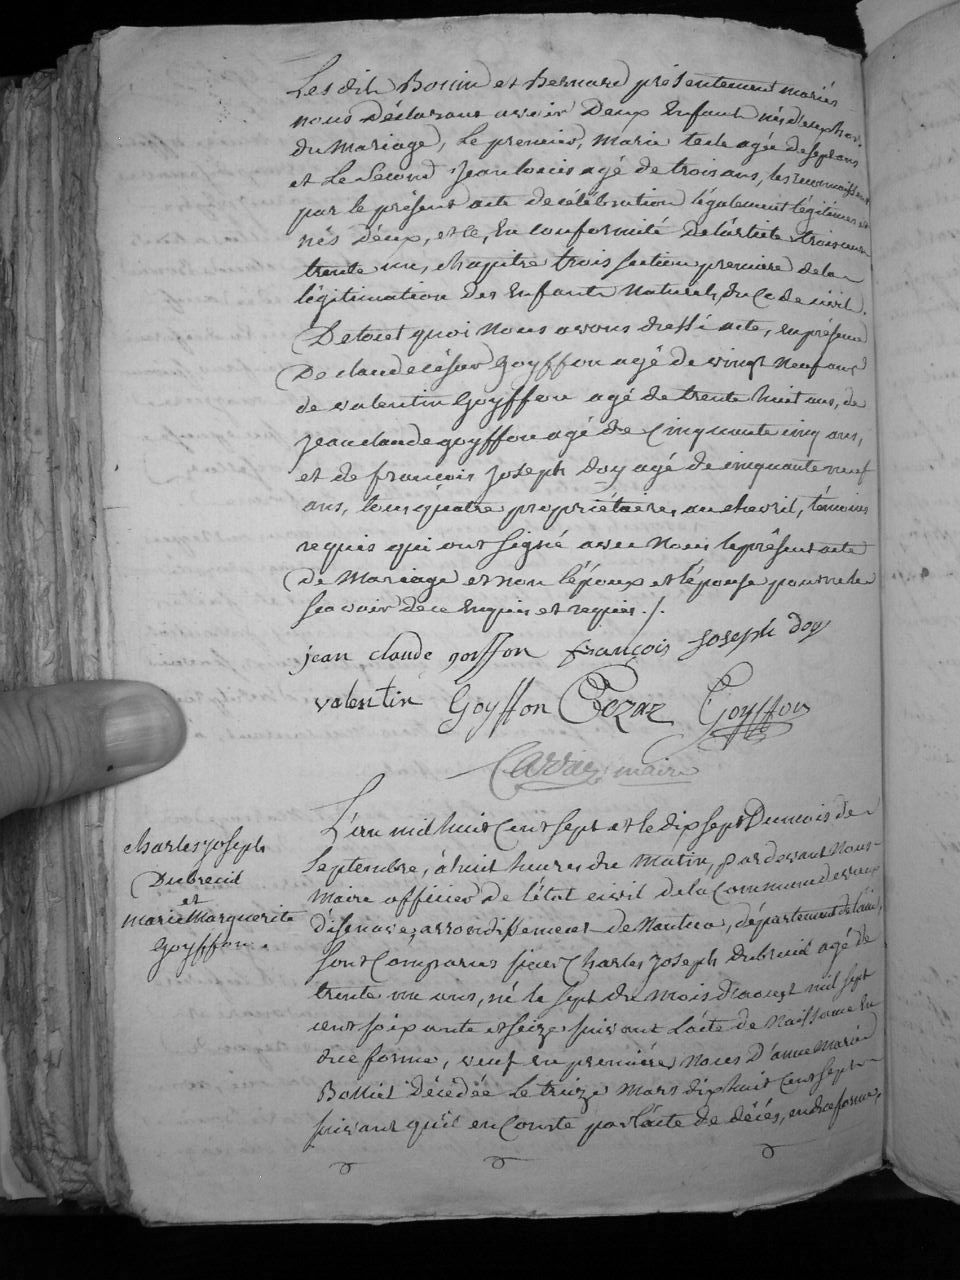 Lesdits Bonin et Bernard présentement mariés
nous déclarons avoir Deux Enfants nés d'eux hors
du Mariage, Le premier, Marie agée de sept ans
et Le Second Jean Louis agé de trois ans, les reconnaissent
par le présent acte de célébration légalement légitimes et
nés d'eux, et ce, En conformité de l'article trois cent
trente un, chapitre trois section premiere de la
légitimation des Enfants Naturels, du Code civil.
De tout quoi Nous avons dressé acte, en présence
De claude césar Goyffon agé de vingt Neuf ans
de valentin Goyffon agé de trente huit ans, de
jean claude goyffon agé de Cinquante cinq ans,
et de françois Joseph Doy agé de cinquante neuf
ans, tous quatre propriétaires, au chevril, témoins
requis qui ont signé avec Nous le présent acte
de Mariage et non l'époux et l'épouse pour ne le
Sçavoir de ce Enquis et requis ./.
jean claude goiffon françois Joseph doy
valentin Goyffon Cezar Goyffon
Carrier maire
Charles Joseph
Dubreuil
et
Marie Marguerite
Goyffon.
L'an mil huit Cent Sept et le dix sept Du mois de
Septembre, à huit heures du Matin, pardevant Nous
maire officier de l'état civil de la Commune de vieux
d'isenave, arrondissement de Nantua, département de l'ain,
Sont Comparus sieur Charles Joseph dubreuil agé de
trente un ans, né le sept du mois d'aoust mil sept
cent soixante et seize suivant L'acte de Naissance En
due forme, veuf En premières Noces D'anne Marie
Bolliet Décédée Le treize Mars dix huit Cent Sept
suivant qu'il en Conste par L'acte de décés, en due forme,